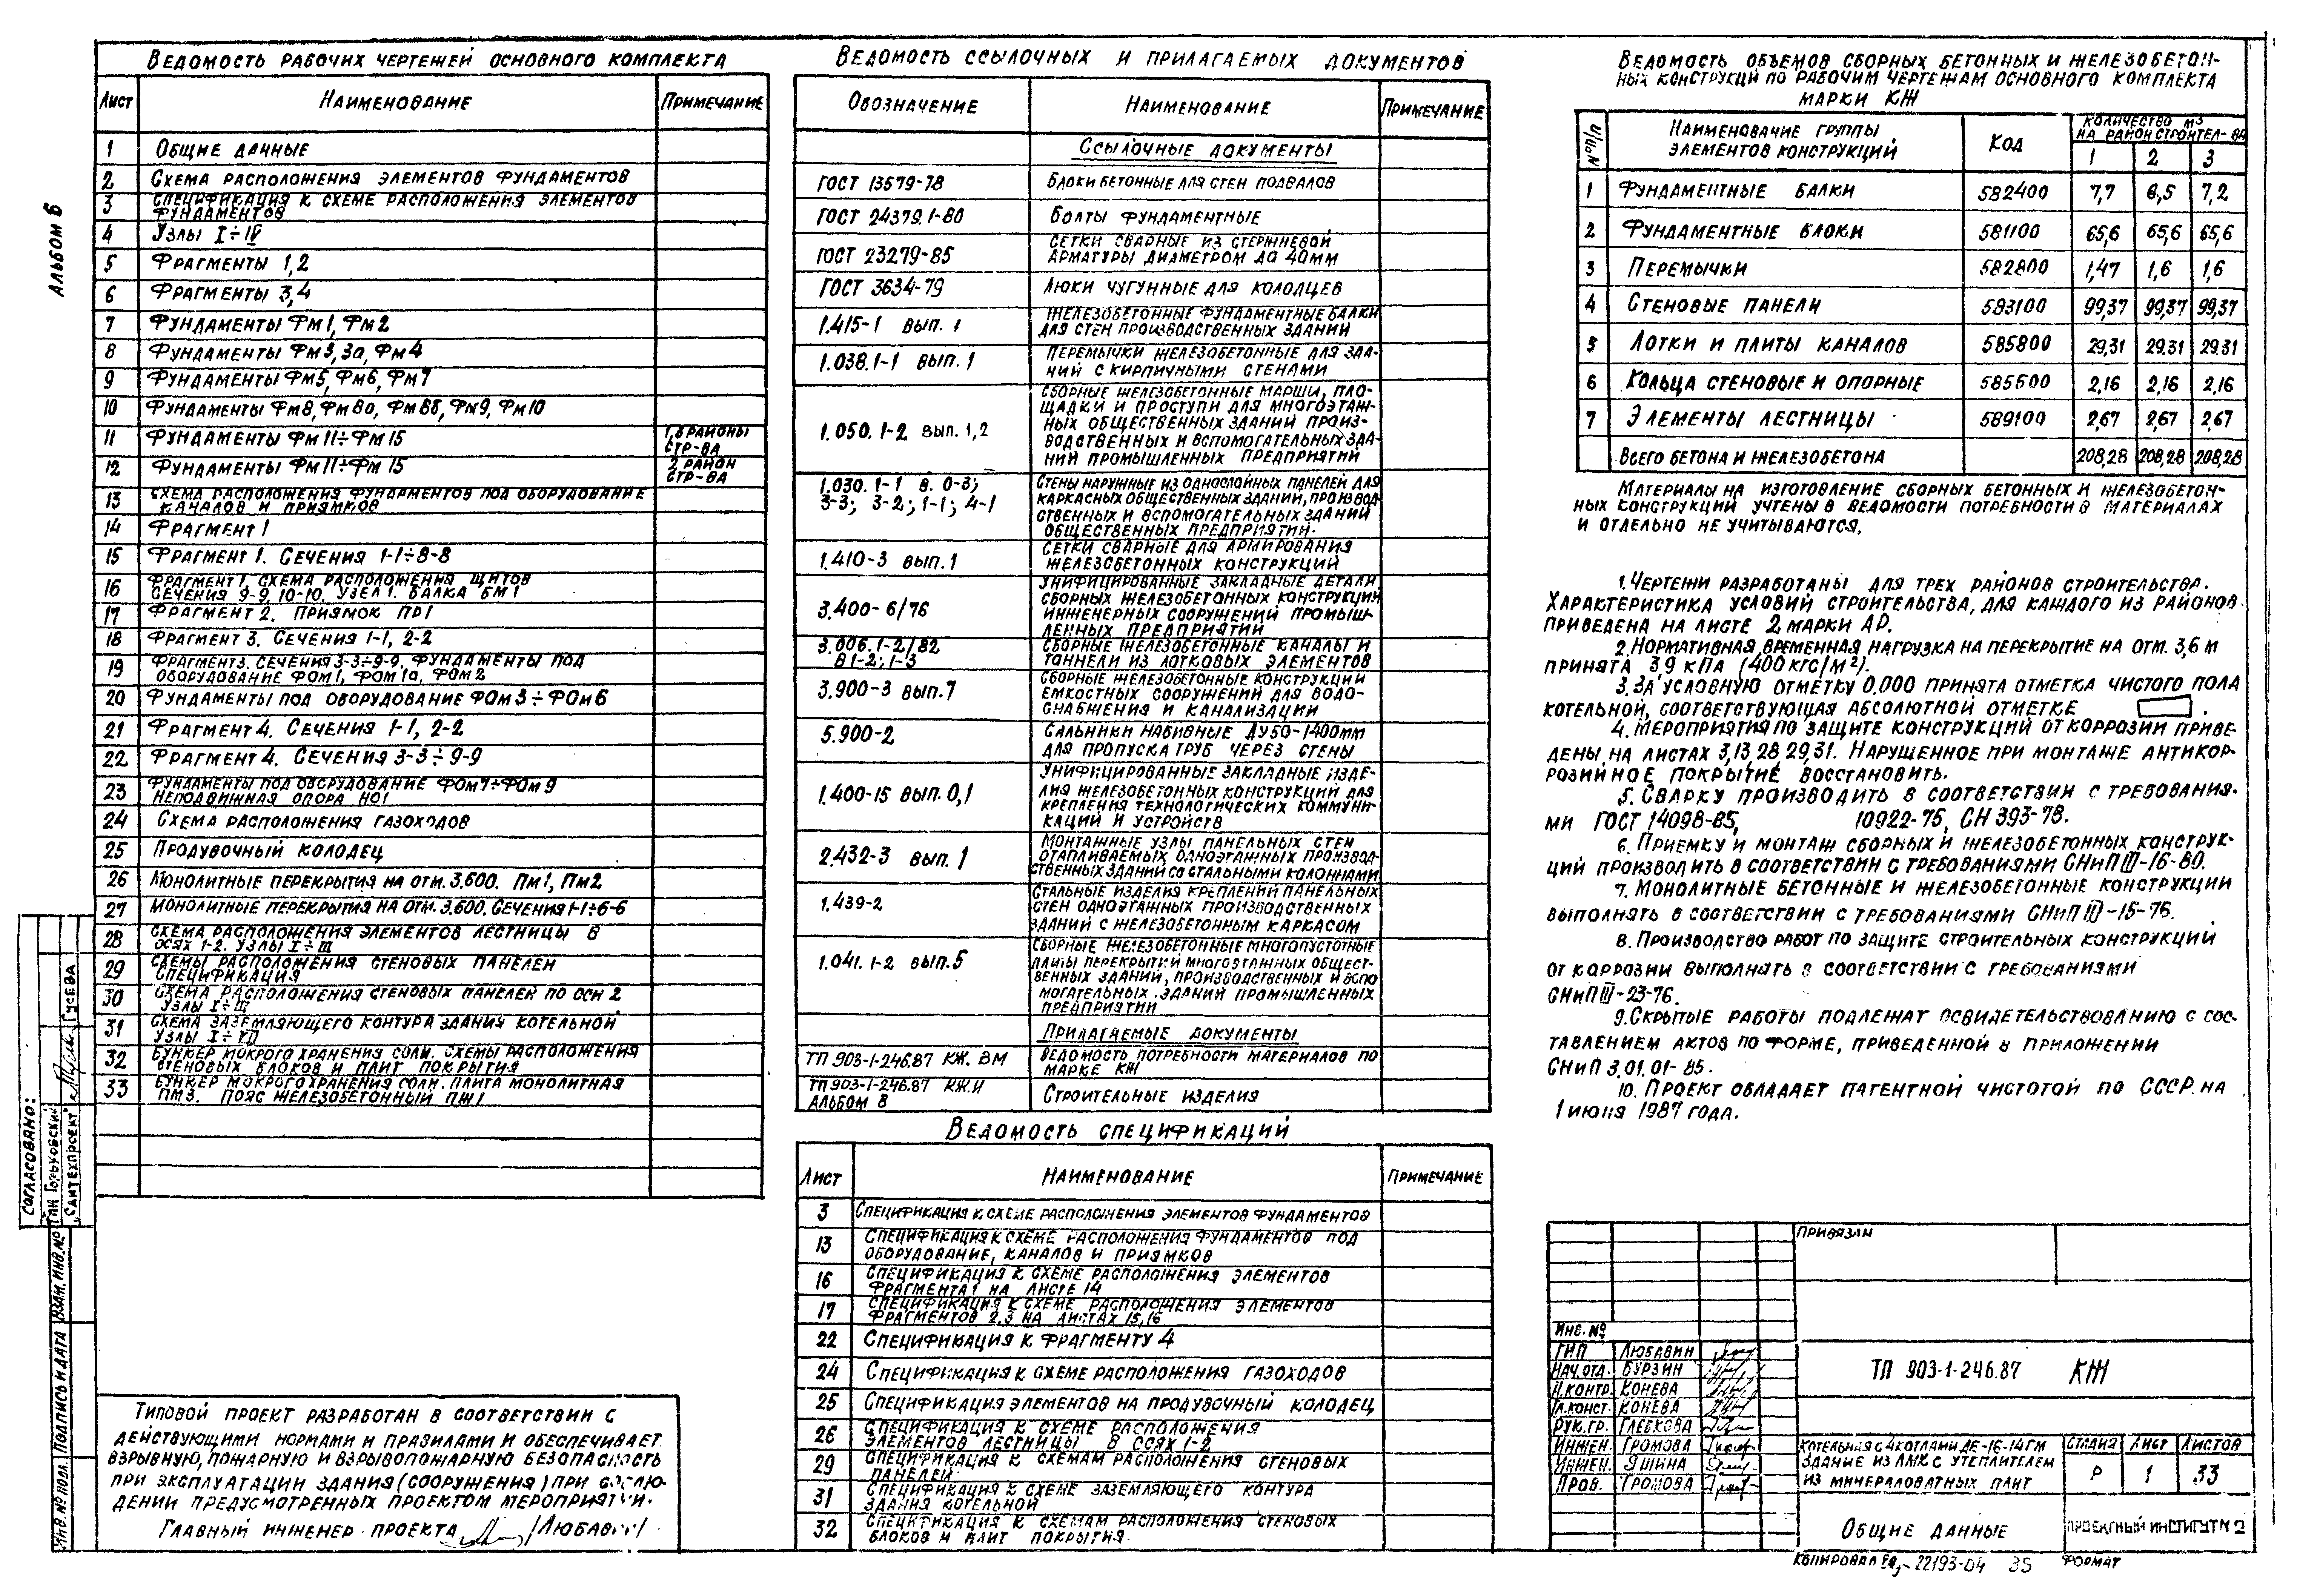 Альбом 6
Ведомость рабочих чертежей основного комплекта
Лист Наименование Примечание
1 Общие данные
2 Схема расположения элементов фундаментов
3 Спецификация к схеме расположения элементов
фундаментов
4 Узлы I÷IV
5 Фрагменты 1,2
6 Фрагменты 3,4
7 Фундаменты Фм1, Фм2
8 Фундаменты Фм3, 3а, Фм4
9 Фундаменты Фм5, Фм6, Фм7
10 Фундаменты Фм8, Фм8а, Фм8б, Фм9, Фм10
11 Фундаменты Фм11÷Фм15 1,3 районы
стр-ва
12 Фундаменты Фм11÷Фм15 2 район
стр-ва
13 Схема расположения фундаментов под оборудование
каналов и приямков
14 Фрагмент 1
15 Фрагмент 1. Сечения 1-1÷8-8
16 Фрагмент 1. Схема расположения щитов
Сечения 9-9, 10-10. Узел 1. Балка Бм1
17 Фрагмент 2. Приямок Пр1
18 Фрагмент 3. Сечения 1-1, 2-2
19 Фрагмент 3. Сечения 3-3÷9-9. Фундаменты под
оборудование ФОм1, ФОм1а, ФОм2
20 Фундаменты под оборудование ФОм3÷ФОм6
21 Фрагмент 4. Сечения 1-1, 2-2
22 Фрагмент 4. Сечения 3-3÷9-9
23 Фундаменты под оборудование ФОм7÷ФОм9
Неподвижная опора НО1
24 Схема расположения газоходов
25 Продувочный колодец
26 Монолитные перекрытия на отм. 3.600. Пм1, Пм2
27 Монолитные перекрытия на отм. 3.600. Сечения 1-1÷6-6
28 Схема расположения элементов лестницы в
осях 1-2. Узлы I÷III
29 Схемы расположения стеновых панелей
Спецификация
30 Схема расположения стеновых панелей по оси 2
Узлы I÷III
31 Схема заземляющего контура здания котельной
Узлы I÷VII
32 Бункер мокрого хранения соли. Схемы расположения
стеновых блоков и плит покрытия
33 Бункер мокрого хранения соли. Плита монолитная
Пм3. Пояс железобетонный ПЖ1
Типовой проект разработан в соответствии с
действующими нормами и правилами и обеспечивает
взрывную, пожарную и взрывопожарную безопасность
при эксплуатации здания (сооружения) при соблю-
дении предусмотренных проектом мероприятий.
Главный инженер проекта /Любавин/
Согласовано:
ГПИ Горьковский
"Сантехпроект" Гусева
Инв.№ подл. Подпись и дата Взам. инв.№
Ведомость ссылочных и прилагаемых документов
Обозначение Наименование Примечание
Ссылочные документы
ГОСТ 13579-78 Блоки бетонные для стен подвалов
ГОСТ 24379.1-80 Болты фундаментные
ГОСТ 23279-85 Сетки сварные из стержневой
арматуры диаметром до 40мм
ГОСТ 3634-79 Люки чугунные для колодцев
1.415-1 вып. 1 Железобетонные фундаментные балки
для стен производственных зданий
1.038.1-1 вып. 1 Перемычки железобетонные для зда-
ний с кирпичными стенами
1.050.1-2 вып. 1,2 Сборные железобетонные марши, пло-
щадки и проступи для многоэтаж-
ных общественных зданий произ-
водственных и вспомогательных зда-
ний промышленных предприятий
1.030.1-1 в. 0-3; Стены наружные из однослойных панелей для
3-3; 3-2; 1-1; 4-1 каркасных общественных зданий, производ-
ственных и вспомогательных зданий
общественных предприятий.
1.410-3 вып. 1 Сетки сварные для армирования
железобетонных конструкций
3.400-6/76 Унифицированные закладные детали
сборных железобетонных конструкций
инженерных сооружений промыш-
ленных предприятий
3.006.1-2/82 Сборные железобетонные каналы и
в 1-2; 1-3 тоннели из лотковых элементов
3.900-3 вып.7 Сборные железобетонные конструкции
емкостных сооружений для водо-
снабжения и канализации
5.900-2 Сальники набивные Ду50-1400мм
для пропуска труб через стены
1.400-15 вып. 0,1 Унифицированные закладные изде-
лия железобетонных конструкций для
крепления технологических коммуни-
каций и устройств
2.432-3 вып. 1 Монтажные узлы панельных стен
отапливаемых одноэтажных производ-
ственных зданий со стальными колоннами
1.439-2 Стальные изделия креплений панельных
стен одноэтажных производственных
зданий с железобетонным каркасом
1.041.1-2 вып.5 Сборные железобетонные многопустотные
плиты перекрытий многоэтажных общест-
венных зданий, производственных и вспо
могательных зданий промышленных
предприятий
Прилагаемые документы
ТП 903-1-246.87 КЖ. ВМ Ведомость потребности материалов по
марке КЖ
ТП 903-1-246.87 КЖ.И
Альбом 8 Строительные изделия
Ведомость спецификаций
Лист Наименование Примечание
3 Спецификация к схеме расположения элементов фундаментов
13 Спецификация к схеме расположения фундаментов под
оборудование, каналов и приямков
16 Спецификация к схеме расположения элементов
фрагмента 1 на листе 14
17 Спецификация к схеме расположения элементов
фрагментов 2,3 на листах 15,16
22 Спецификация к фрагменту 4
24 Спецификация к схеме расположения газоходов
25 Спецификация элементов на продувочный колодец
26 Спецификация к схеме расположения
элементов лестницы в осях 1-2
29 Спецификация к схемам расположения стеновых
панелей
31 Спецификация к схеме заземляющего контура
здания котельной
32 Спецификация к схемам расположения стеновых
блоков и плит покрытия.
Ведомость объемов сборных бетонных и железобетон-
ных конструкций по рабочим чертежам основного комплекта
марки КЖ
№ п/п Наименование группы элементов конструкций Код Количество м³ на район строител-ва
1 2 3
1 Фундаментные балки 582400 7,7 6,5 7,2
2 Фундаментные блоки 581100 65,6 65,6 65,6
3 Перемычки 582800 1,47 1,6 1,6
4 Стеновые панели 583100 99,37 99,37 99,37
5 Лотки и плиты каналов 585800 29,31 29,31 29,31
6 Кольца стеновые и опорные 585500 2,16 2,16 2,16
7 Элементы лестницы 589100 2,67 2,67 2,67
Всего бетона и железобетона 208,28 208,28 208,28
Материалы на изготовление сборных бетонных и железобетон-
ных конструкций учтены в ведомости потребности в материалах
и отдельно не учитываются.
1. Чертежи разработаны для трех районов строительства.
Характеристика условий строительства, для каждого из районов
приведена на листе 2 марки АР.
2. Нормативная временная нагрузка на перекрытие на отм. 3,6 м
принята 3,9 кПа (400 кгс/м²).
3. За условную отметку 0.000 принята отметка чистого пола
котельной, соответствующая абсолютной отметке .
4. Мероприятия по защите конструкций от коррозии приве-
дены на листах 3,13,28,29,31. Нарушенное при монтаже антикор-
розийное покрытие восстановить.
5. Сварку производить в соответствии с требования-
ми ГОСТ 14098-85, 10922-75, СН 393-78.
6. Приемку и монтаж сборных и железобетонных конструк-
ций производить в соответствии с требованиями СНиП III-16-80.
7. Монолитные бетонные и железобетонные конструкции
выполнять в соответствии с требованиями СНиП III-15-76.
8. Производство работ по защите строительных конструкций
от коррозии выполнять в соответствии с требованиями
СНиП III-23-76.
9. Скрытые работы подлежат освидетельствованию с сос-
тавлением актов по форме, приведенной в приложении
СНиП 3.01.01-85.
10. Проект обладает патентной чистотой по СССР на
1 июня 1987 года.
Привязан
Инв. №
ГИП Любавин
Нач.отд. Бурзин
Н.контр. Конева
Гл.конст. Конева
Рук.гр. Глебкова
Инжен. Громова
Инжен. Яшина
Пров. Громова
ТП 903-1-246.87 КЖ
Котельная с 4 котлами ДЕ-16-14ГМ
Здание из ЛМК с утеплителем
из минераловатных плит
Стадия Лист Листов
Р 1 33
Общие данные
Проектный институт №2
Копировал 22193-04 35 Формат